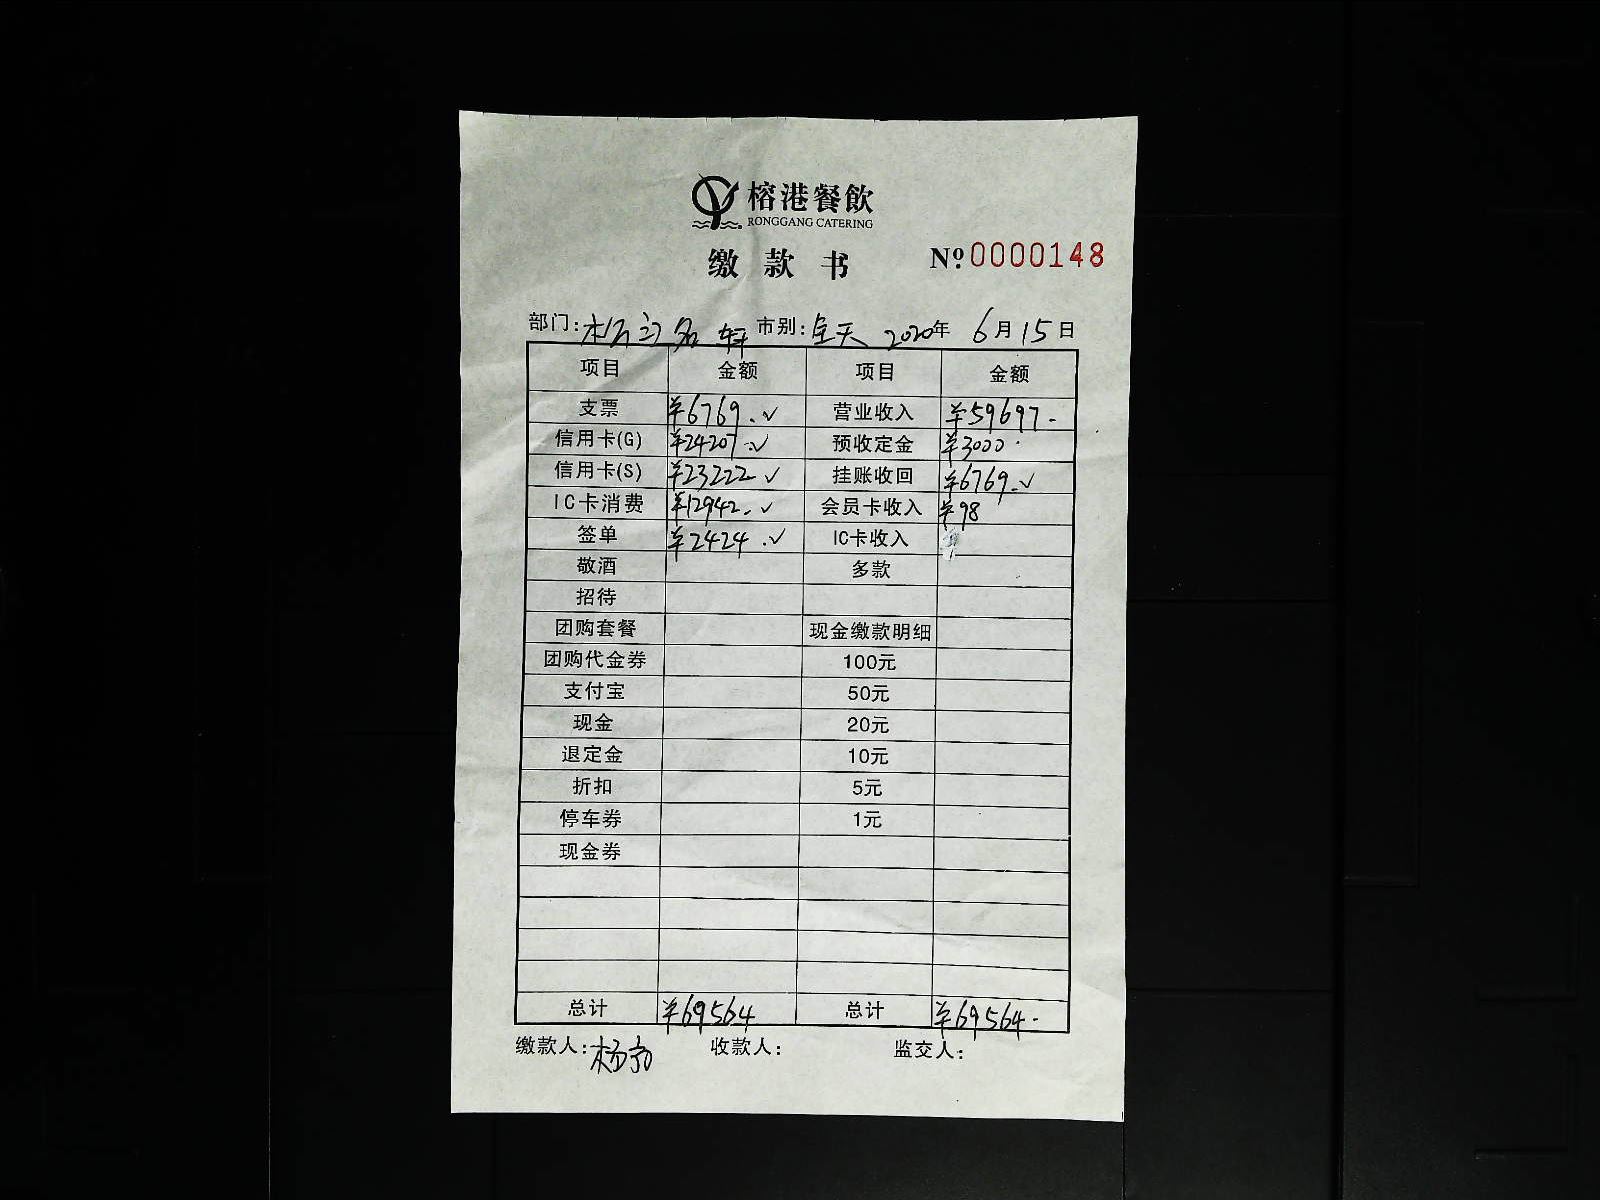 榕港餐飲
RONGGANG CATERING
缴款书
Nº 0000148
部门: 名轩 市别: 全天 2020年 6月15日
项目 金额 项目 金额
支票 ¥6769. ✓ 营业收入 ¥59697-
信用卡(G) ¥24207 ✓ 预收定金 ¥3000
信用卡(S) ¥23222 ✓ 挂账收回 ¥6769. ✓
IC卡消费 ¥12942. ✓ 会员卡收入 ¥98
签单 ¥2424 . ✓ IC卡收入
敬酒 多款
招待
团购套餐 现金缴款明细
团购代金券 100元
支付宝 50元
现金 20元
退定金 10元
折扣 5元
停车券 1元
现金券
总计 ¥69564 总计 ¥69564-
缴款人: 杨 收款人: 监交人: